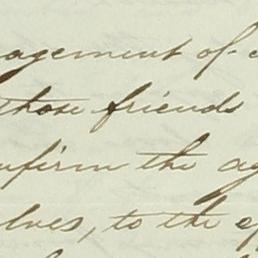 agement of
those friends
nfirm the ag
lves, to the ef